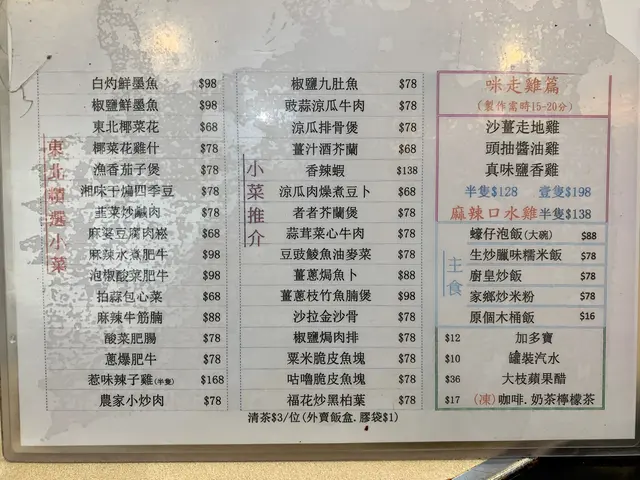 東北嶺選小菜
白灼鮮墨魚 $98
椒鹽鮮墨魚 $98
東北椰菜花 $68
椰菜花雞什 $78
漁香茄子煲 $78
湘味干煸四季豆 $78
韭菜炒鹹肉 $78
麻婆豆腐肉崧 $68
麻辣水煮肥牛 $98
泡椒酸菜肥牛 $98
拍蒜包心菜 $68
麻辣牛筋腩 $88
酸菜肥腸 $78
蔥爆肥牛 $78
惹味辣子雞(半隻) $168
農家小炒肉 $78
小菜推介
椒鹽九肚魚 $78
豉蒜涼瓜牛肉 $78
涼瓜排骨煲 $78
薑汁酒芥蘭 $68
香辣蝦 $138
涼瓜肉燥煮豆卜 $68
者者芥蘭煲 $78
蒜茸菜心牛肉 $78
豆豉鯪魚油麥菜 $78
薑蔥焗魚卜 $88
薑蔥枝竹魚腩煲 $98
沙拉金沙骨 $78
椒鹽焗肉排 $78
粟米脆皮魚塊 $78
咕嚕脆皮魚塊 $78
福花炒黑柏葉 $78
咪走雞篇
(製作需時15-20分)
沙薑走地雞
頭抽醬油雞
真味鹽香雞
半隻$128 壹隻$198
麻辣口水雞 半隻$138
主食
蠔仔泡飯(大碗) $88
生炒臘味糯米飯 $78
廚皇炒飯 $78
家鄉炒米粉 $78
原個木桶飯 $16
$12 加多寶
$10 罐裝汽水
$36 大枝蘋果醋
$17 (凍)咖啡.奶茶檸檬茶
清茶$3/位(外賣飯盒.膠袋$1)